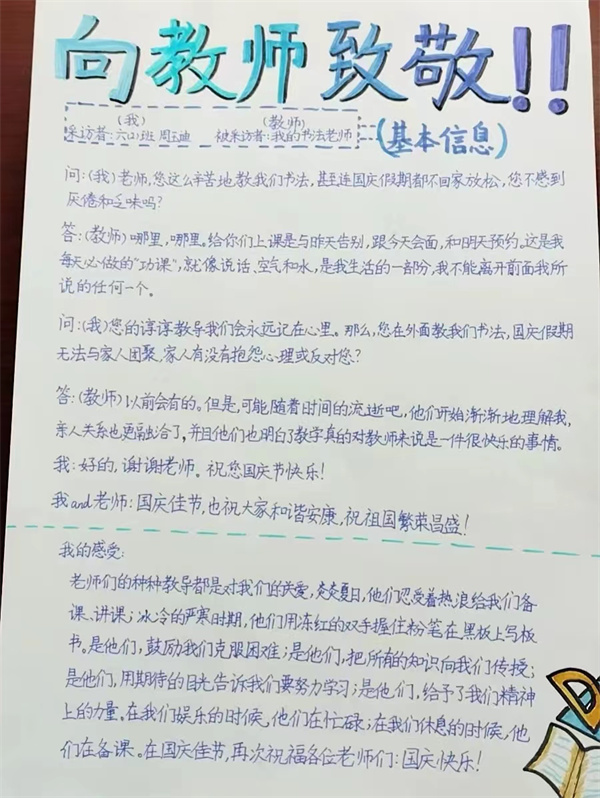 向教师致敬!!
(我) (教师)
采访者:六(2)班 周玉迪 被采访者:我的书法老师
(基本信息)
问:(我)老师,您这么辛苦地教我们书法,甚至连国庆假期都不回家放松,您不感到
厌倦和乏味吗?
答:(教师)哪里,哪里。给你们上课是与昨天告别,跟今天会面,和明天预约。这是我
每天必做的“功课”,就像说话、空气和水,是我生活的一部分,我不能离开前面我所
说的任何一个。
问:(我)您的谆谆教导我们会永远记在心里。那么,您在外面教我们书法,国庆假期
无法与家人团聚,家人有没有抱怨心理或反对您?
答:(教师)以前会有的。但是,可能随着时间的流逝吧,他们开始渐渐地理解我,
亲人关系也更融洽了,并且他们也明白了教学真的对教师来说是一件很快乐的事情。
我:好的,谢谢老师。祝您国庆节快乐!
我and老师:国庆佳节,也祝大家和谐安康,祝祖国繁荣昌盛!
我的感受:
老师们的种种教导都是对我们的关爱,炎炎夏日,他们忍受着热浪给我们备
课、讲课;冰冷的严寒时期,他们用冻红的双手握住粉笔在黑板上写板
书。是他们,鼓励我们克服困难;是他们,把所有的知识向我们传授;
是他们,用期待的目光告诉我们要努力学习;是他们,给予了我们精神
上的力量。在我们娱乐的时候,他们在忙碌;在我们休息的时候,他
们在备课。在国庆佳节,再次祝福各位老师们:国庆快乐!